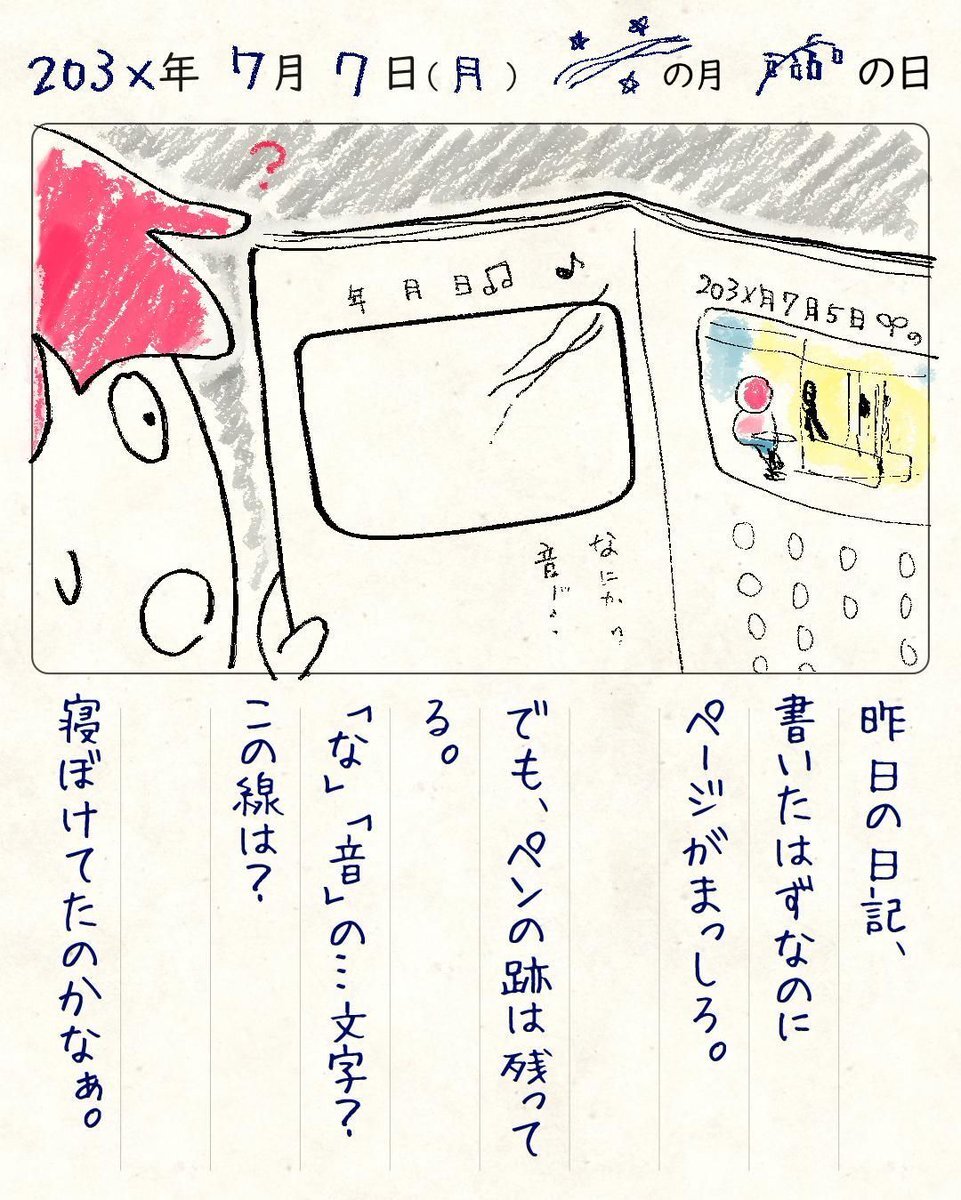 203x年 7月 7日(月) の月 の日
?
年 月 日
203x月7月5日 の
なにか
音
昨日の日記、
書いたはずなのに
ページがまっしろ。
でも、ペンの跡は残って
る。
「な」「音」の…文字？
この線は？
寝ぼけてたのかなぁ。